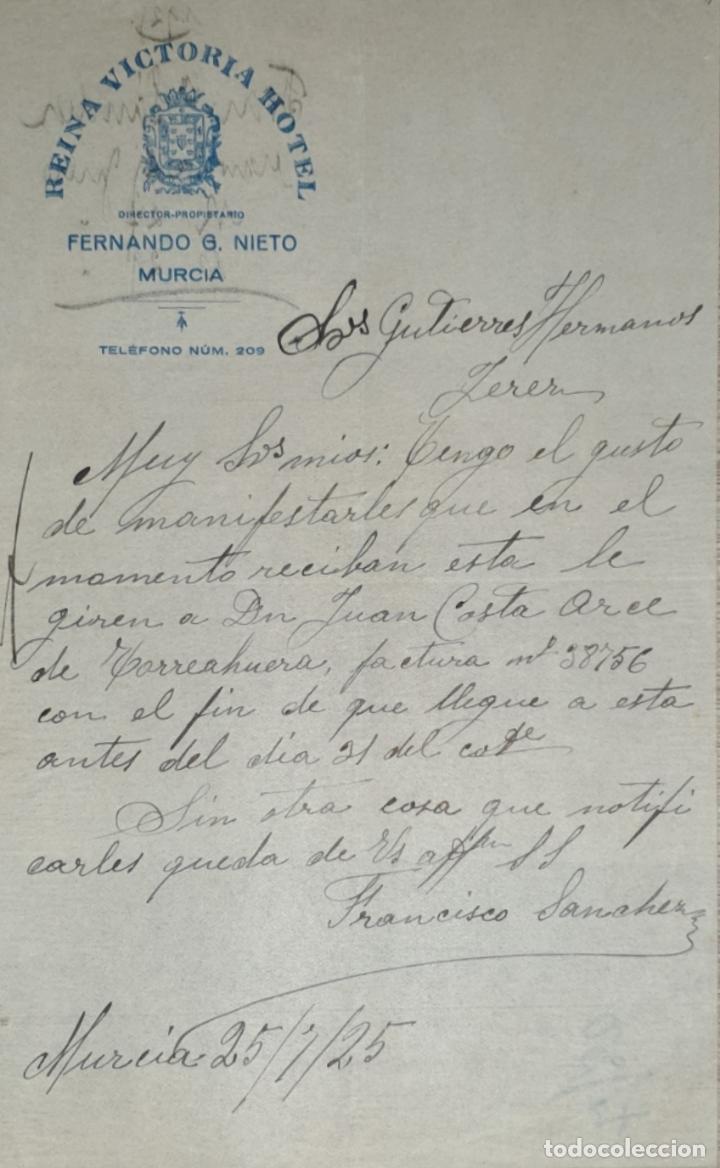 REINA VICTORIA HOTEL
DIRECTOR-PROPIETARIO
FERNANDO G. NIETO
MURCIA
TELÉFONO NÚM. 209
Srs Gutierres Hermanos
Jerez
Muy Srs mios: Tengo el gusto
de manifestarles que en el
momento reciban esta le
giren a Dn Juan Costa Arce
de Torreahuera, factura nº 38756
con el fin de que llegue a esta
antes del dia 31 del cote
Sin otra cosa que notifi
carles queda de Vs affmo SS
Francisco Sanchez
Murcia 25/7/25
todocoleccion